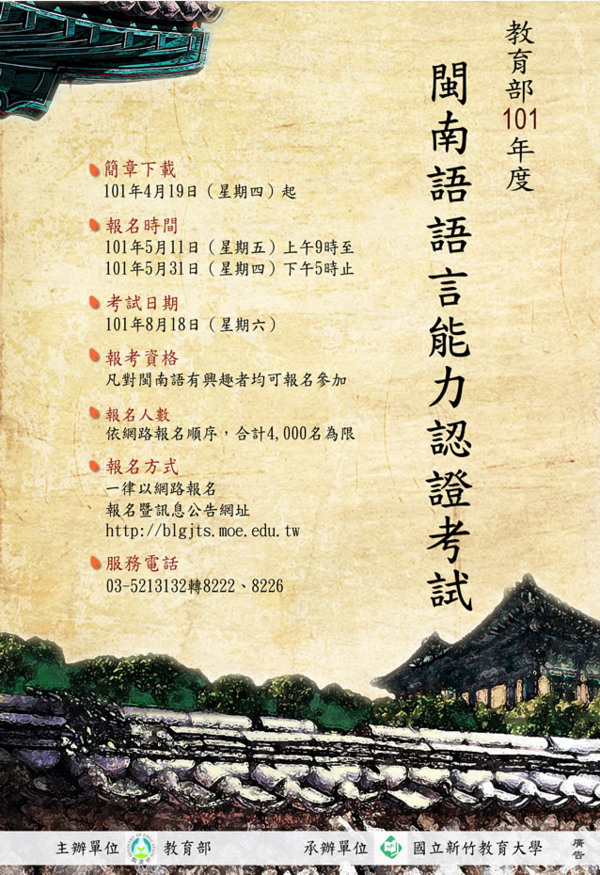 教育部101年度
閩南語語言能力認證考試
簡章下載
101年4月19日（星期四）起
報名時間
101年5月11日（星期五）上午9時至
101年5月31日（星期四）下午5時止
考試日期
101年8月18日（星期六）
報考資格
凡對閩南語有興趣者均可報名參加
報名人數
依網路報名順序，合計4,000名為限
報名方式
一律以網路報名
報名暨訊息公告網址
http://blgjts.moe.edu.tw
服務電話
03-5213132轉8222、8226
主辦單位 教育部 承辦單位 國立新竹教育大學 廣告